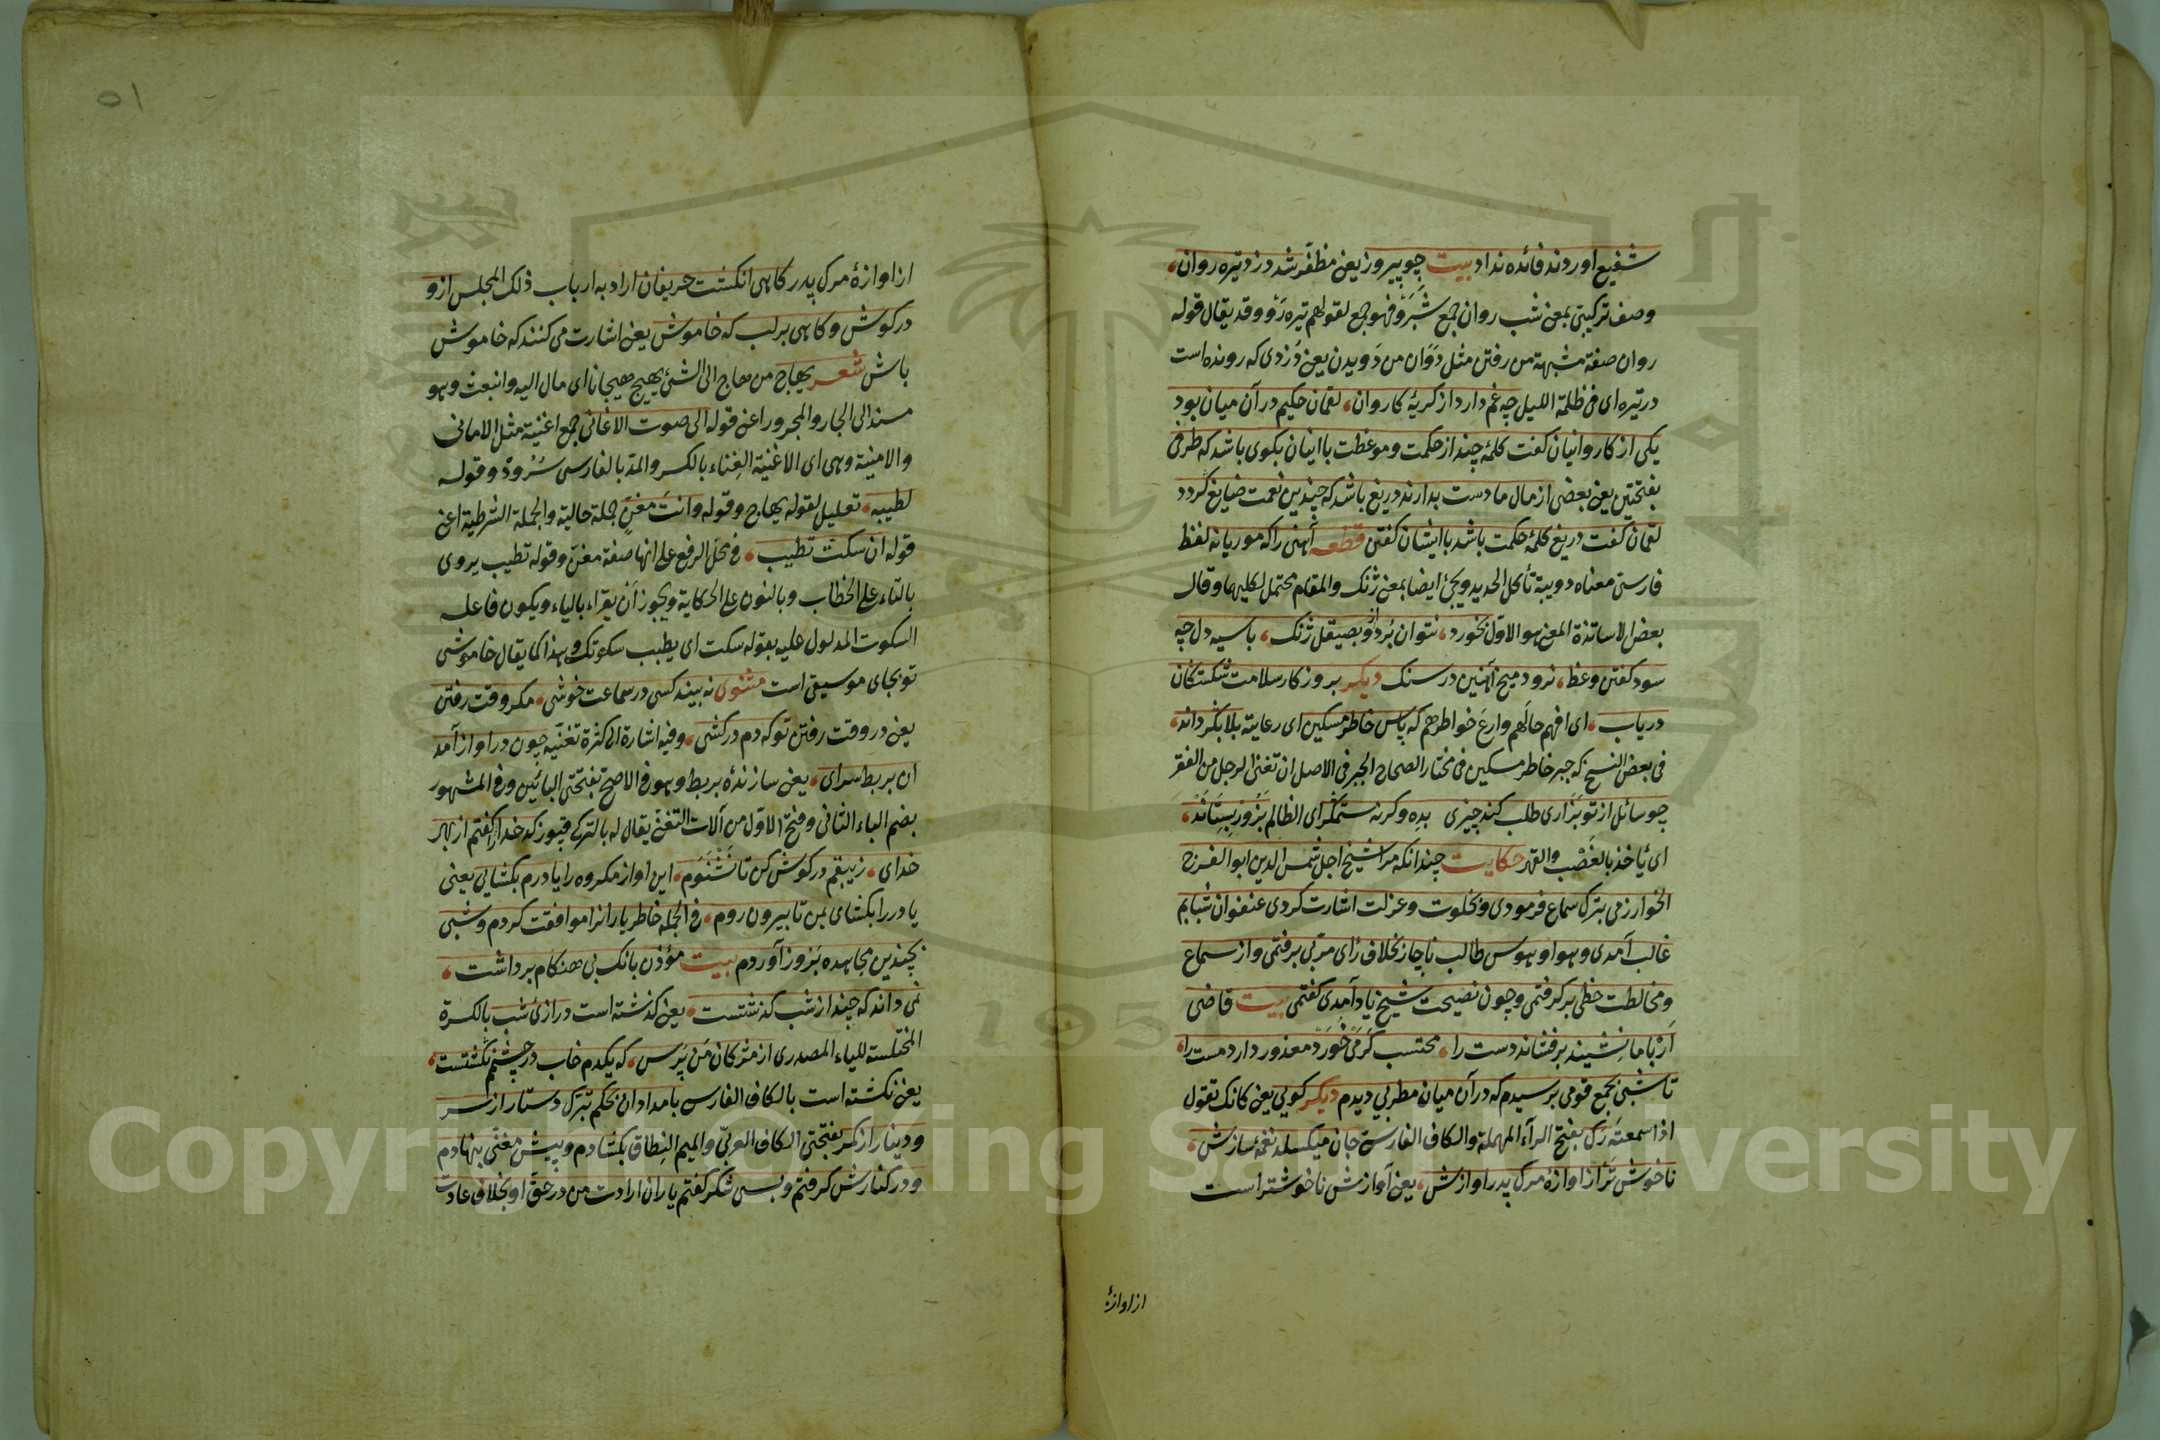 شفیع اوردند فائده نداد بیت چو پیروز یعنی مظفر شد دزد تیره روان،
وصف ترکیبی بمعنی شب روان جمع شبرو فهو جمع لقولهم تیره رو وقد یقال قوله
روان صفة مشبهة من رفتن مثل دوان من دویدن یعنی دزدی که رونده است
در تیره ای فی ظلمة اللیل چه غم دارد از کریهٔ کاروان، لقمان حکیم در آن میان بود
یکی از کاروانیان کفت کلمهٔ چند از حکمت وموعظت با اینان بکوی باشد که طرفی
بفتحتین یعنی بعضی از مال ما دست بدارند دریغ باشد که چندین نعمت ضایع کردد
لقمان کفت دریغ کلمهٔ حکمت باشد با ایشان کفتن قطعه آهنی را که موریانه لفظ
فارسی معناه دویبة تأکل الحدید ویجئ ایضا بمعنی ژنک والمقام محتمل لکلیهما وقال
بعض الاساتذة المعنی هو الاول بخورد، نتوان برد ازو بصیقل ژنک، با سیه دل چه
سود کفتن وعظ، نرود میخ آهنین در سنک دیکر بروزکار سلامت شکستکان
دریاب، ای افهم حالهم وارع خواطرهم که پاس خاطر مسکین ای رعایته بلا بکرداند،
فی بعض النسخ که جبر خاطر مسکین فی مختار الصحاح الجبر فی الاصل ان تغنی الرجل من الفقر
چو سائل از تو بزاری طلب کند چیزی بده وکرنه ستمکر ای الظالم بزور بستاند،
ای یأخذ بالغصب والقهر حکایت چندانکه مرا شیخ اجل شمس الدین ابو الفرج
الخوارزمی بترک سماع فرمودی وبخلوت وعزلت اشارت کردی عنفوان شبابم
غالب آمدی وهوا وهوس طالب ناچار بخلاف رای مربی برفتمی واز سماع
ومخالطت حظی برکرفتمی وچون نصیحت شیخ یاد آمدی کفتمی بیت قاضی
ار با ما نشیند برفشاند دست را، محتسب کر می خورد معذور دارد مست را،
تا شبی بجمع قومی برسیدم که در آن میان مطربی دیدم دیکر کویی یعنی کانک تقول
اذا سمعته رک بفتح الراء المهملة والکاف الفارسی جان میکسلد نغمهٔ سازش،
ناخوش تر از اوازهٔ مرک پدر اوازش، یعنی آوازش ناخوشتر است
از اوازهٔ
٥١
از اوازهٔ مرک پدر کاهی انکشت حریفان اراد به ارباب ذلک المجلس ازو
در کوش وکاهی بر لب که خاموش یعنی اشارت می کنند که خاموش
باش شعر یهاج من هاج الی الشئ یهیج هیجانا ای مال الیه وانبعث وهو
مسند الی الجار والمجرور اعنی قوله الی صوت الاغانی جمع اغنیة مثل الامانی
والامنیة وهی ای الاغنیة الغناء بالکسر والمد بالفارسی سرود وقوله
لطیبه، تعلیل لقوله یهاج وقوله وانت مغن جملة حالیة والجملة الشرطیة اعنی
قوله ان سکت تطیب، فی محل الرفع علی انها صفة مغن وقوله تطیب یروی
بالتاء علی الخطاب وبالنون علی الحکایة ویجوز أن یقراء بالیاء ویکون فاعله
السکوت المدلول علیه بقوله سکت ای یطیب سکوتک وهذا کما یقال خاموشی
تو بجای موسیقی است مثنوی نه بیند کسی در سماعت خوشی، مکر وقت رفتن
یعنی در وقت رفتن تو که دم درکشی، وفیه اشارة الی کثرة تغنیه چون در اواز آمد
ان بربط سرای، یعنی سازندهٔ بربط وهو فی الاصح بفتحتی البائین وفی المشهور
بضم الباء الثانی وفتح الاول من آلات التغنی یقال له بالترکی قپوز کدخدا را کفتم از بهر
خدای، زیبقم در کوش کن تا نشنوم، این اواز مکروه را یا درم بکشایی یعنی
یا در را بکشای بمن تا بیرون روم، فی الجمله خاطر یارانرا موافقت کردم وشبی
بچندین مجاهده بروز آوردم بیت مؤذن بانک بی هنکام برداشت،
نمی داند که چند از شب کذشتست، یعنی کذشته است درازئ شب بالکسرة
المختلسة للیاء المصدری از مژکان من پرس، که یکدم خاب در چشمم نکشتست،
یعنی نکشته است بالکاف الفارسی بامدادان بحکم تبرک دستار از سر
ودینار از کمر بفتحتی الکاف العربی والمیم النطاق بکشادم وپیش مغنی بنهادم
ودر کنارش کرفتم وبسی شکر کفتم یاران ارادت من در حق او بخلاف عادت
Copyright © King Saud University
1957